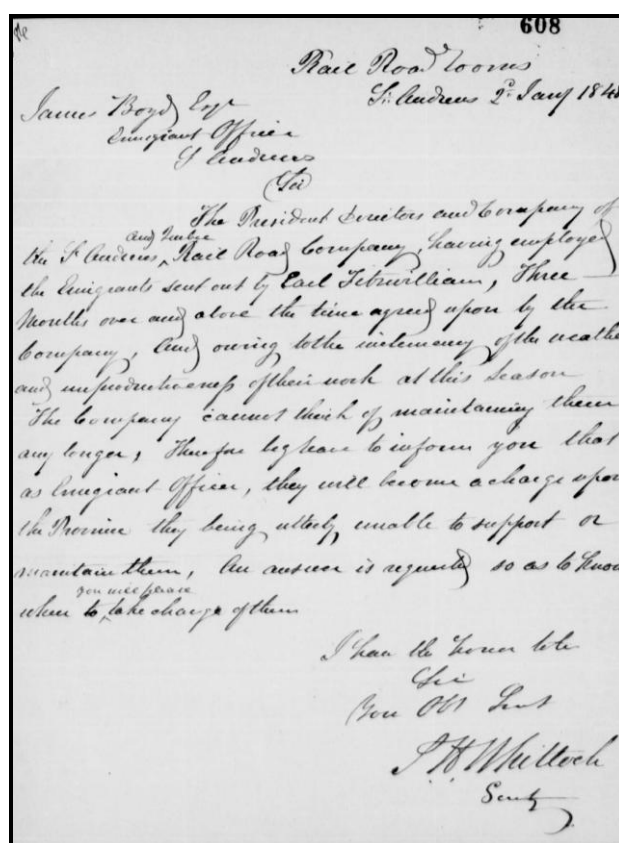 608
Rail Road rooms
St Andrews 2d Jany 1848
James Boyd Esqr
Emigrant Officer
St Andrews
Sir
The President Directors and Company of
and Quebec
the St Andrews, Rail Road Company, having employed
the Emigrants sent out by Earl Fitzwilliam, Three
Months over and above the time agreed upon by the
Company, And owing to the inclemency of the weather
and unproductiveness of their work at this Season
The Company cannot think of maintaining them
any longer, Therefore beg leave to inform you that
as Emigrant Officer, they will become a charge upon
the Province they being utterly unable to support or
maintain them, An answer is requested so as to know
you will please
when to take charge of them
I have the honor to be
Sir
Your Obt Servt
J. H. Whitlock
Secrty